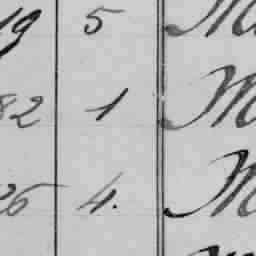 19 5 M
82 1 M
26 4. M